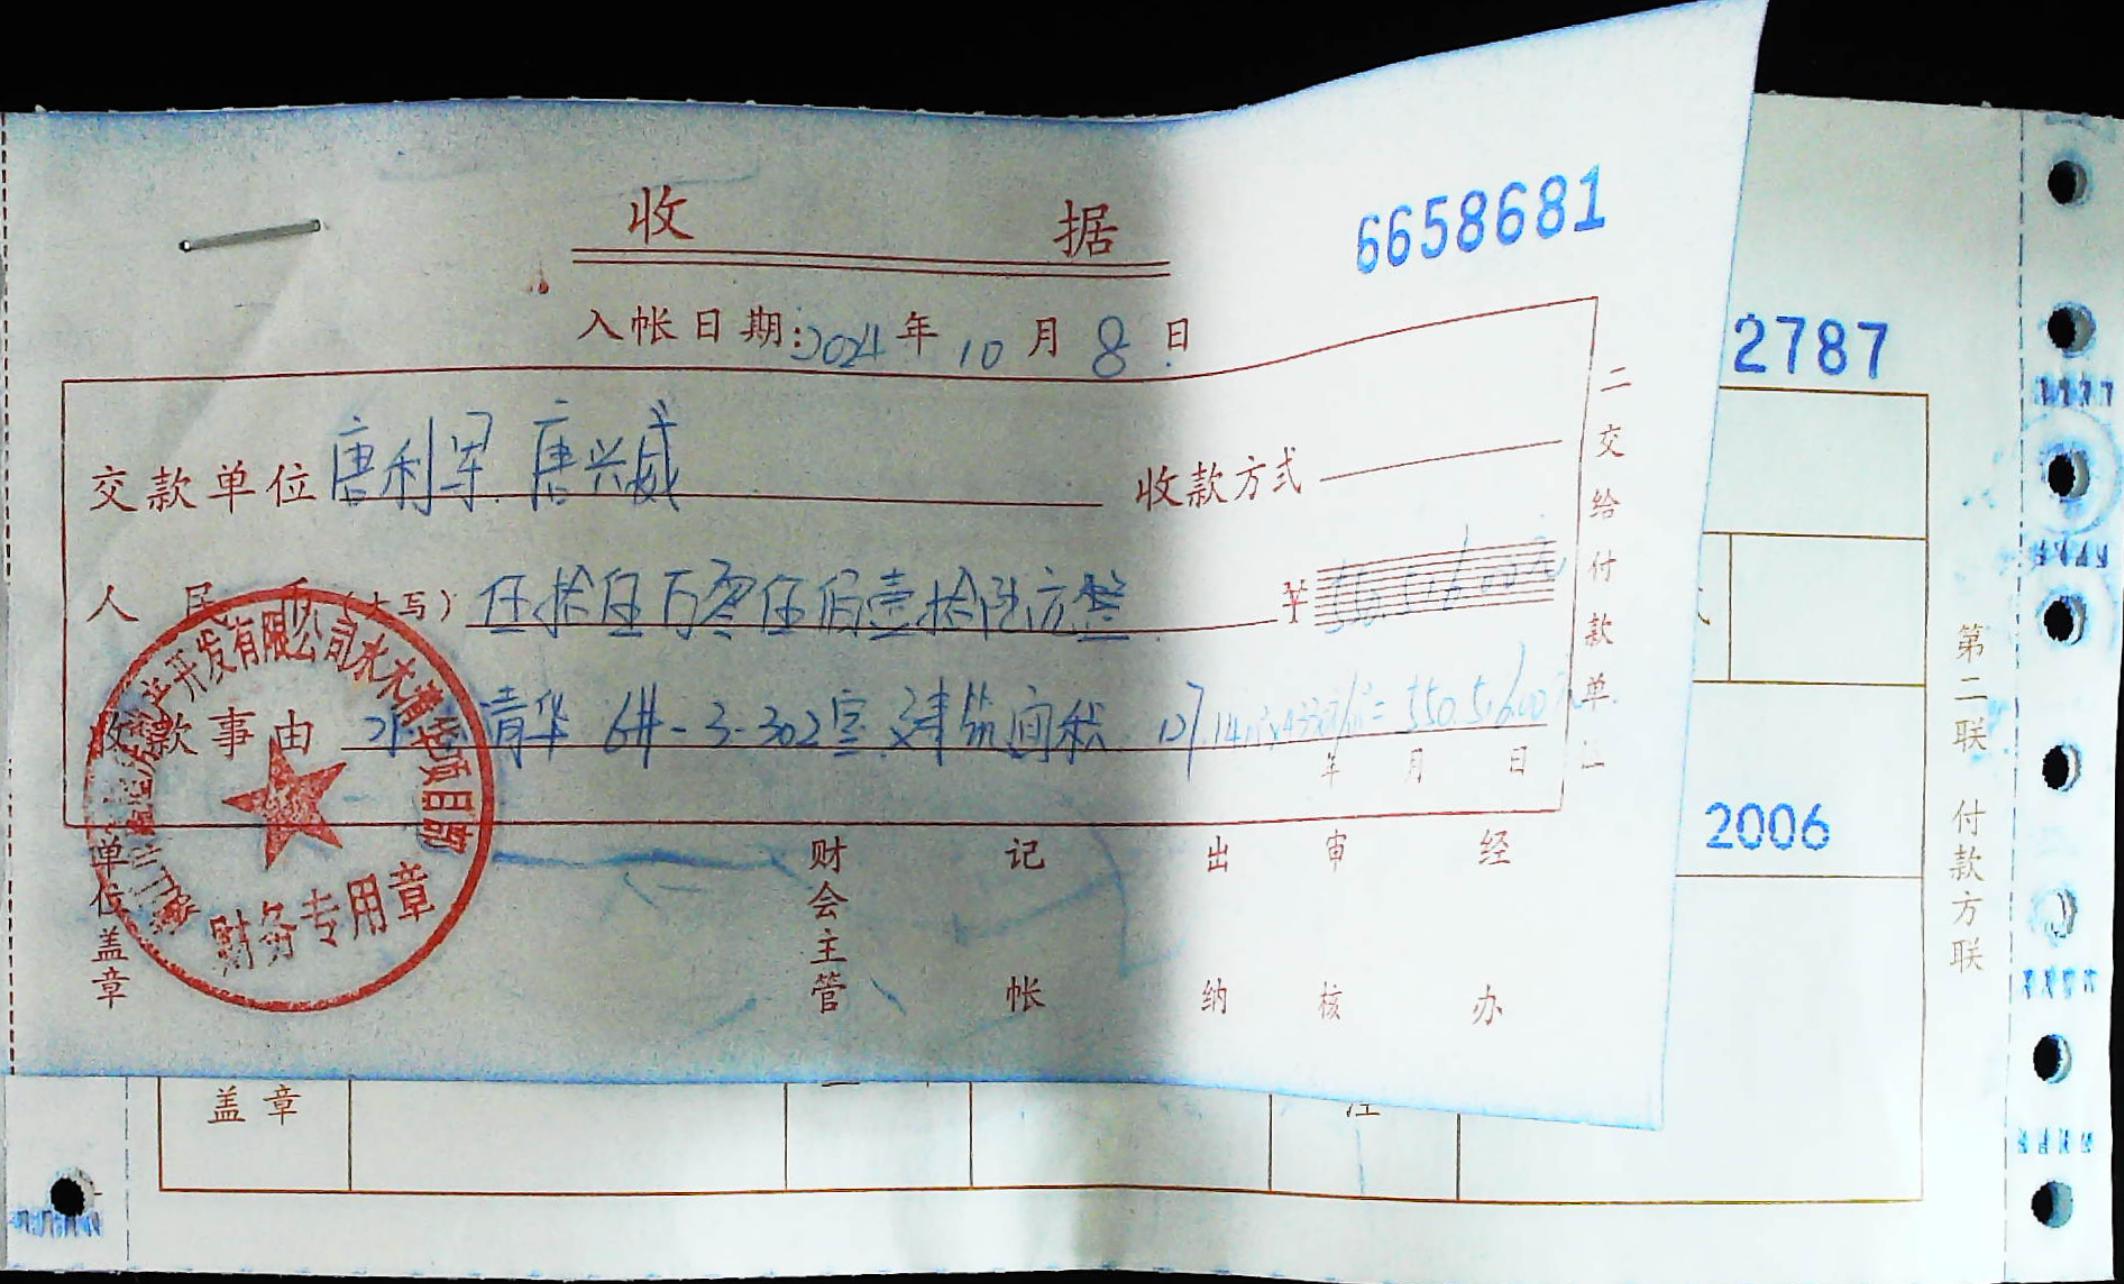 收 据
6658681
入帐日期：2024年10月8日
2787
交款单位 唐利军. 唐兴威 收款方式
人民币（大写） 伍拾伍万零伍佰壹拾陆元整 ￥550.516.00元
收款事由 水木清华 6#-3-302室 建筑面积 127.14㎡×4330元/㎡=550.516.00元
年 月 日
二交给付款单位
2006
单位盖章
财会主管
记帐
出纳
审核
经办
开发有限公司水木清华项目部
财务专用章
第二联 付款方联
盖章